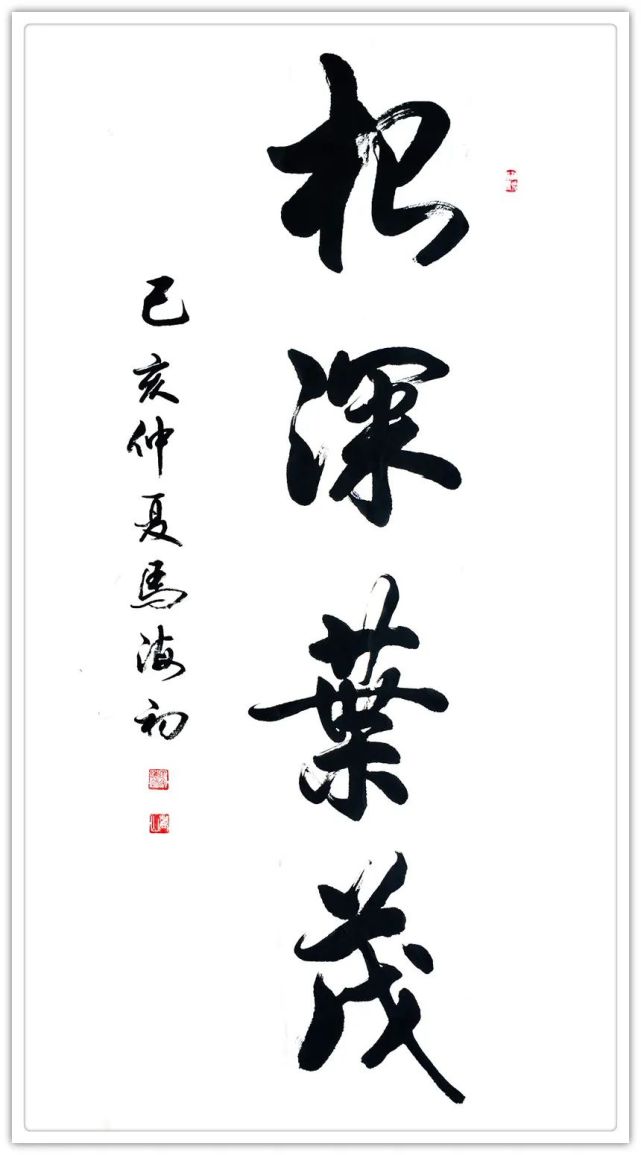 根深葉茂
己亥仲夏馬海初